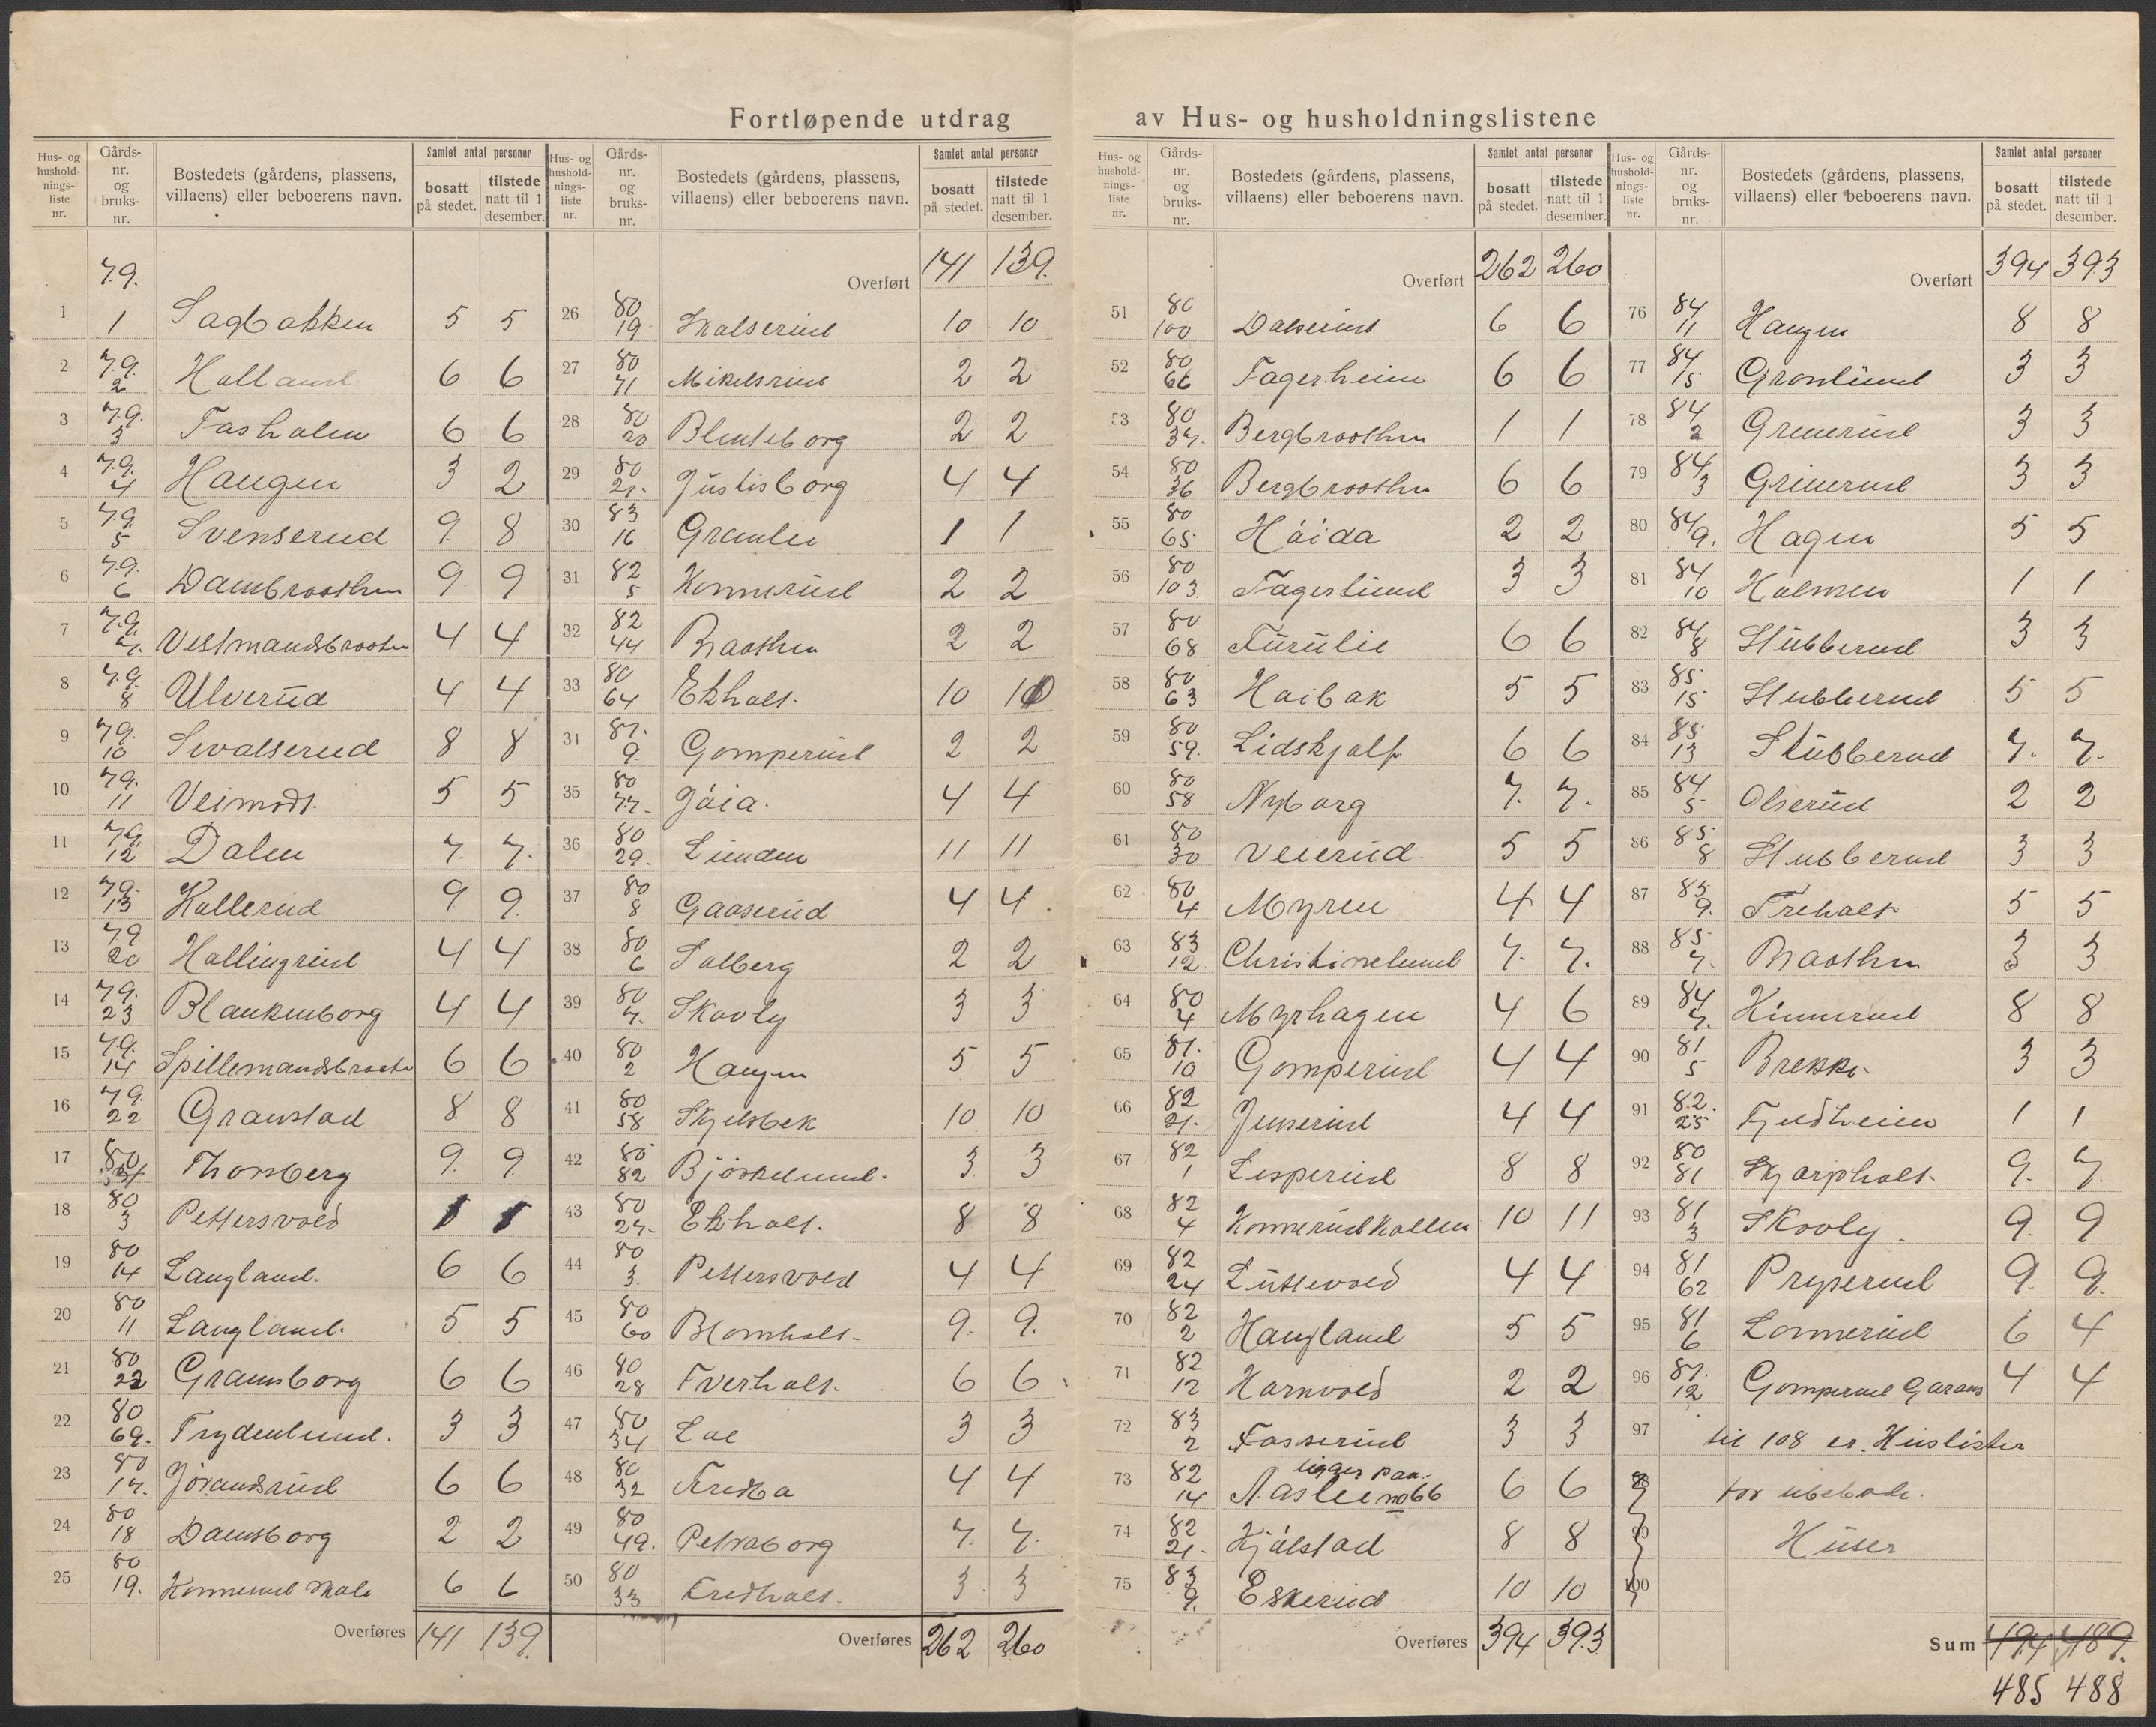 Fortløpende utdrag av Hus- og husholdningslistene
Hus- og husholdnings- liste nr. Gårds- nr. og bruks- nr. Bostedets (gårdens, plassens, villaens) eller beboerens navn. Samlet antal personer bosatt på stedet. tilstede natt til 1 desember.
79.
1 1 Sagbakken 5 5
2 79. 2 Halland 6 6
3 79. 3 Fashalen 6 6
4 79. 4 Haugen 3 2
5 79. 5 Svenserud 9 8
6 79. 6 Dambraathen 9 9
7 79. 7. Vestmandsbraaten 4 4
8 79. 8 Ulverud 4 4
9 79. 10 Sivalserud 8 8
10 79. 11 Veimodt. 5 5
11 79. 12 Dalen 7. 7.
12 79. 13 Kallerud 9 9.
13 79. 20 Hallingrud 4 4
14 79. 23 Blankenborg 4 4
15 79. 14 Spillemandsbraate 6 6
16 79. 22 Granstad 8 8
17 80 Thorsberg 9. 9.
18 80 3 Pettersvold
19 80 14 Langland. 6 6
20 80 11 Langland. 5 5
21 80 22 Gramsborg 6 6
22 80 69. Frydenlund. 3 3
23 80 17. Jørandsrud 6 6
24 80 18 Damsborg 2 2
25 80 19. Konnerud skole 6 6
Overføres 141 139.
Hus- og husholdnings- liste nr. Gårds- nr. og bruks- nr. Bostedets (gårdens, plassens, villaens) eller beboerens navn. Samlet antal personer bosatt på stedet. tilstede natt til 1 desember.
Overført 141 139.
26 80 19 Skalserud 10 10
27 80 71 Mikelsrud 2 2
28 80 20 Blenteborg 2 2
29 80 21. Justisborg 4 4
30 83 16 Granlie 1 1
31 82 5 Konnerud 2 2
32 82 44 Braathen 2 2
33 80 64 Ekholt. 10 10
34 81. 9. Gomperud 2 2
35 80 77. Jöia. 4 4
36 80 29. Lunden 11 11
37 80 8 Gaaserud 4 4.
38 80 6 Solberg 2 2
39 80 7. Skovly 3 3
40 80 2 Haugen 5 5
41 80 58 Skjelsbek 10 10
42 80 82 Björkelund. 3 3
43 80 27. Ekholt. 8 8
44 80 3. Pettersvold 4 4
45 80 60 Blomholt. 9. 9.
46 80 28 Tverholt. 6 6
47 80 34 Loe 3 3
48 80 32 Fredbo 4 4
49 80 49. Petraborg 7. 7.
50 80 33 Fredholt. 3 3
Overføres 262 260
Hus- og husholdnings- liste nr. Gårds- nr. og bruks- nr. Bostedets (gårdens, plassens, villaens) eller beboerens navn. Samlet antal personer bosatt på stedet. tilstede natt til 1 desember.
Overført 262 260
51 80 100 Dalserud 6 6
52 80 66 Fagerheim 6 6
53 80 37. Bergbraathen 1 1
54 80 36 Bergbraathen 6 6
55 80 65 Höida 2 2
56 80 103 Fagerlund 3 3
57 80 68 Furulie 6 6
58 80 63 Haibak 5 5
59 80 59. Lidskjalf 6 6
60 80 58 Nyborg 7. 7.
61 80 30 Veierud 5 5
62 80 4 Myren 4 4
63 83 12 Christinelund 7. 7.
64 80 4 Myrhagen 4 6
65 81. 10 Gomperud 4 4
66 82 21. Jenserud 4 4
67 82 1 Lesperud 8 8
68 82 4 Konnerudkollen 10 11
69 82 24 Luttevold 4 4
70 82 2 Haugland 5 5
71 82 12 Hornvold 2 2
72 83 2 Fosserud 3 3
73 82 14 Aaslee ligger paa no 66 6 6
74 82 21. Hjålstad 8 8
75 83 9. Eskerud 10 10
Overføres 394 393
Hus- og husholdnings- liste nr. Gårds- nr. og bruks- nr. Bostedets (gårdens, plassens, villaens) eller beboerens navn. Samlet antal personer bosatt på stedet. tilstede natt til 1 desember.
Overført 394 393
76 84 11 Haugen 8 8
77 84 15 Grønlund 3 3
78 84 2 Gruerud 3 3
79 84 3 Gruerud 3 3
80 84 9. Hagen 5 5
81 84 10 Holmen 1 1
82 84 8 Stubberud 3 3
83 85 15 Stubberud 5 5
84 85 13 Stubberud 7. 7.
85 84 5 Olserud 2 2
86 85 8 Stubberud 3 3
87 85 9. Treholt 5 5
88 85 7. Braathen 3 3
89 84 7. Kinnerud 8 8
90 81 5 Brekke 3 3
91 82. 25 Fjeldheim 1 1
92 80 81 Skjarpholt. 9. 7.
93 81 3 Skovly. 9. 9
94 81 62 Pryserud 9. 9.
95 81 6 Lonnerud 6 4
96 81. 12 Gomperud Garaas 4 4
97 til 108 er. Huslister
98 for ubebode.
99 Huser
100
Sum 494 489.
485 488